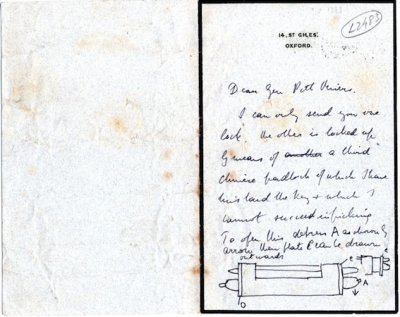 L2483
14, ST GILES,
OXFORD.
Dear Gen Pitt Rivers.
I can only send you one
lock. The other is locked up
by means of another a third
Chinese padlock of which I have
mis laid the key & which I
cannot succeed in picking
To open this depress A as shown by
arrow then plate B can be drawn
outwards
e
e
A